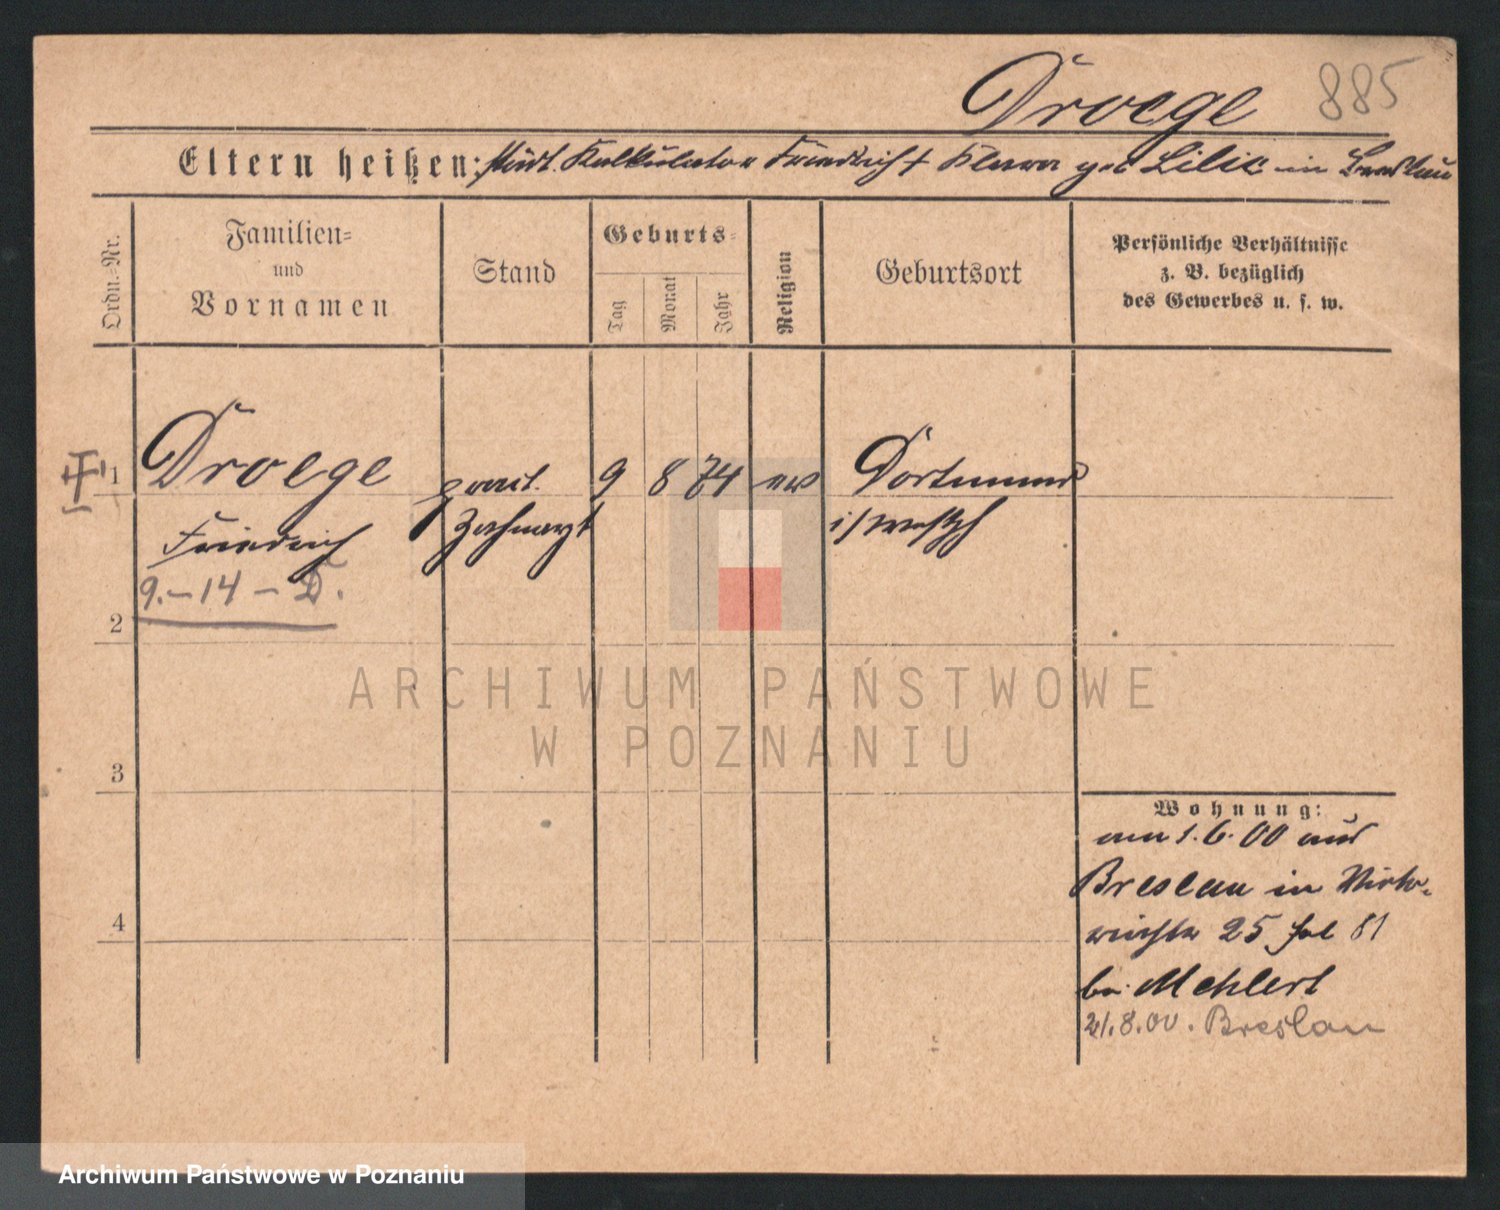 Droege 885
Eltern heißen: Kalkulator Friedrich + Klara geb Lilie in Breslau
Ordn.-Nr.
Familien-
und
Vornamen
Stand
Geburts-
Tag
Monat
Jahr
Religion
Geburtsort
Persönliche Verhältnisse
z. B. bezüglich
des Gewerbes u. s. w.
1 Droege pract. 9 8 74 ev Dortmund
Friedrich Zahnarzt i/Westph
9.-14-D.
2
3
4
Wohnung:
am 1.6.00 aus
Breslau in
25 bei
bei Mehlert
21.8.00. Breslau
ARCHIWUM PAŃSTWOWE
W POZNANIU
Archiwum Państwowe w Poznaniu